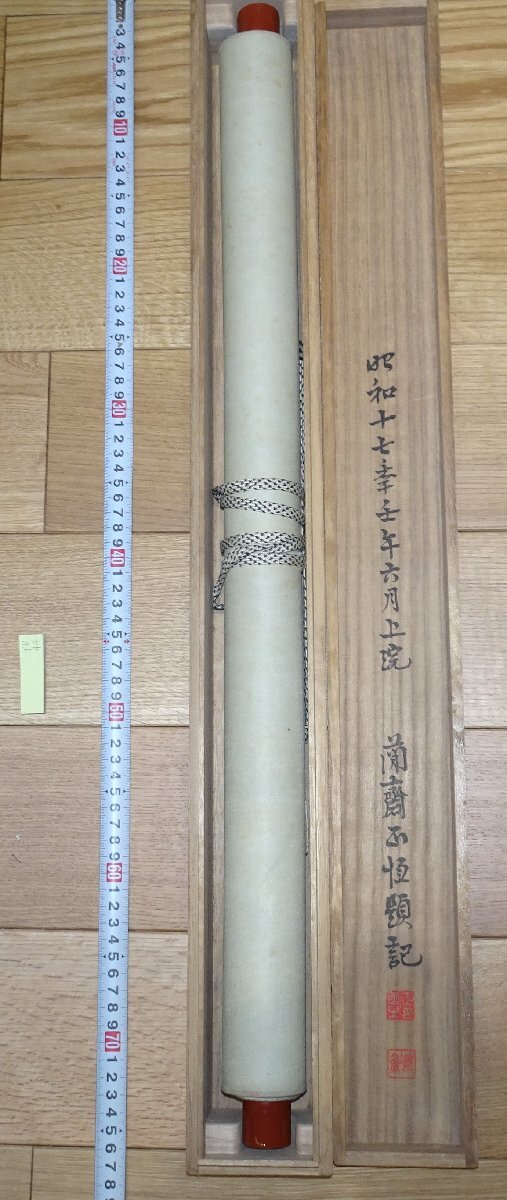 昭和十七年壬午六月上浣
蘭齋正恒題記
3 4 5 6 7 8 9 10 1 2 3 4 5 6 7 8 9 20 1 2 3 4 5 6 7 8 9 30 1 2 3 4 5 6 7 8 9 40 1 2 3 4 5 6 7 8 9 50 1 2 3 4 5 6 7 8 9 60 1 2 3 4 5 6 7 8 9 70 1 2 3 4 5 6 7 8